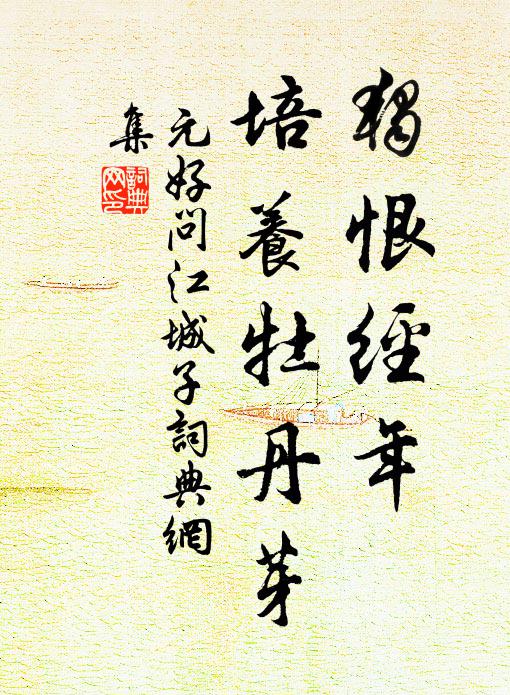 獨恨經年
培養牡丹芽
元好問江城子詞典網
集
詞典
网印